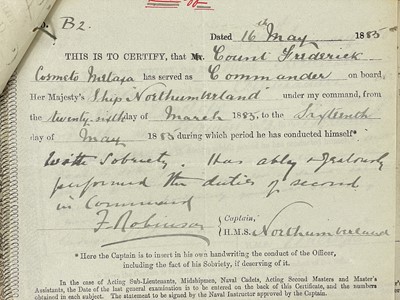 B2.
Dated 16th May 1885
THIS IS TO CERTIFY, that Mr. Count Frederick
Cosmeto Metaxa has served as Commander on board
Her Majesty's Ship "Northumberland" under my command, from
the twenty-sixth day of March 1885, to the Sixteenth
day of May 1885 during which period he has conducted himself*
With Sobriety. Has ably & zealously
performed the duties of second
in Command
F Robinson { Captain,
H.M.S. Northumberland
* Here the Captain is to insert in his own handwriting the conduct of the Officer,
including the fact of his Sobriety, if deserving of it.
In the case of Acting Sub-Lieutenants, Midshipmen, Naval Cadets, Acting Second Masters and Master's
Assistants, the Date of the last general examination is to be entered on the back of this Certificate, and the numbers
obtained in each subject. The statement to be signed by the Naval Instructor approved by the Captain.